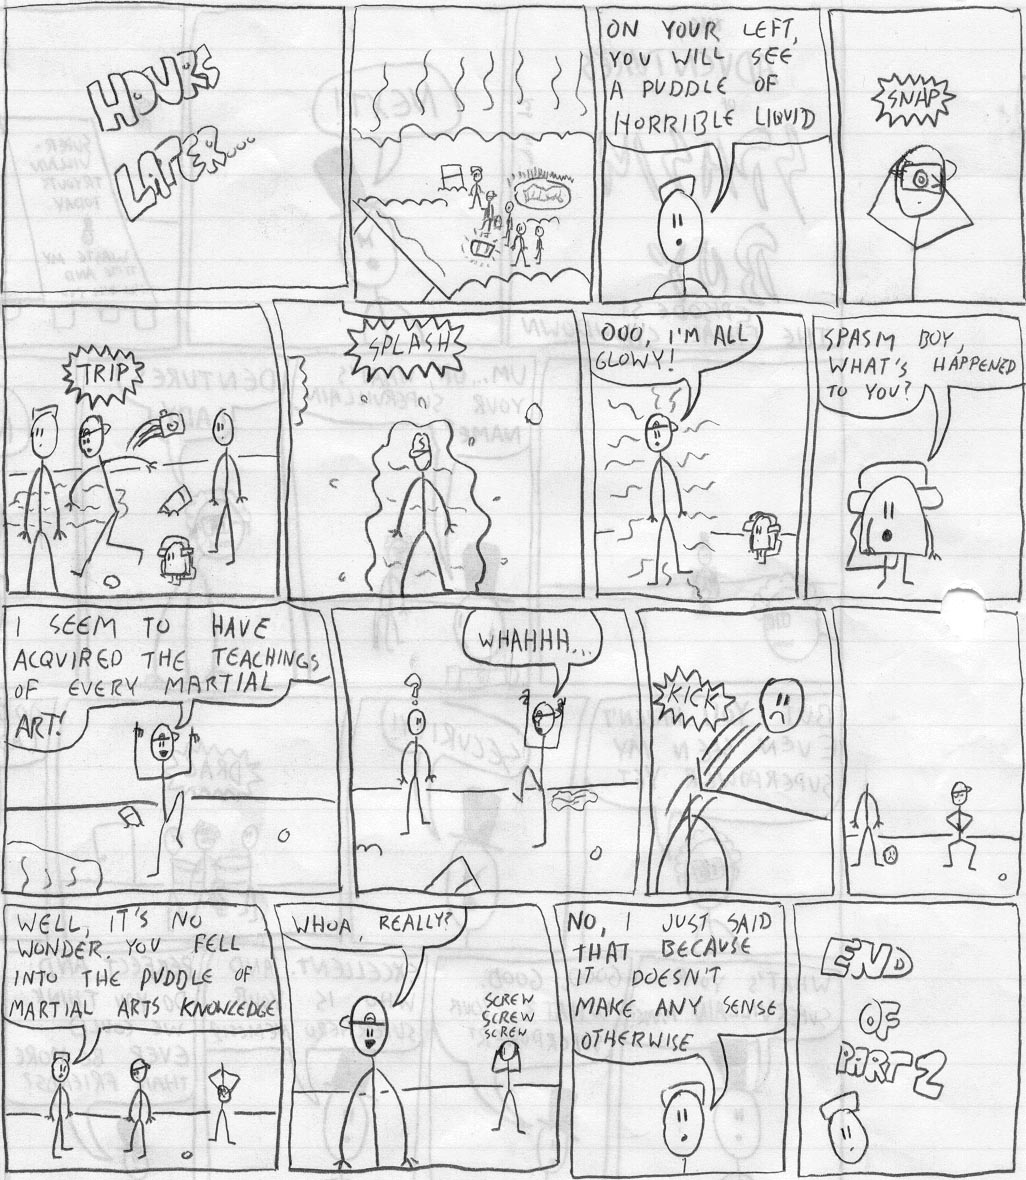 HOURS
LATER...
ON YOUR LEFT,
YOU WILL SEE
A PUDDLE OF
HORRIBLE LIQUID
SNAP
TRIP
SPLASH
OOO, I'M ALL
GLOWY!
SPASM BOY,
WHAT'S HAPPENED
TO YOU?
I SEEM TO HAVE
ACQUIRED THE TEACHINGS
OF EVERY MARTIAL
ART!
?
WHAHHH...
KICK
WELL, IT'S NO
WONDER, YOU FELL
INTO THE PUDDLE OF
MARTIAL ARTS KNOWLEDGE
WHOA, REALLY?
SCREW
SCREW
SCREW
NO, I JUST SAID
THAT BECAUSE
IT DOESN'T
MAKE ANY SENSE
OTHERWISE
END
OF
PART 2